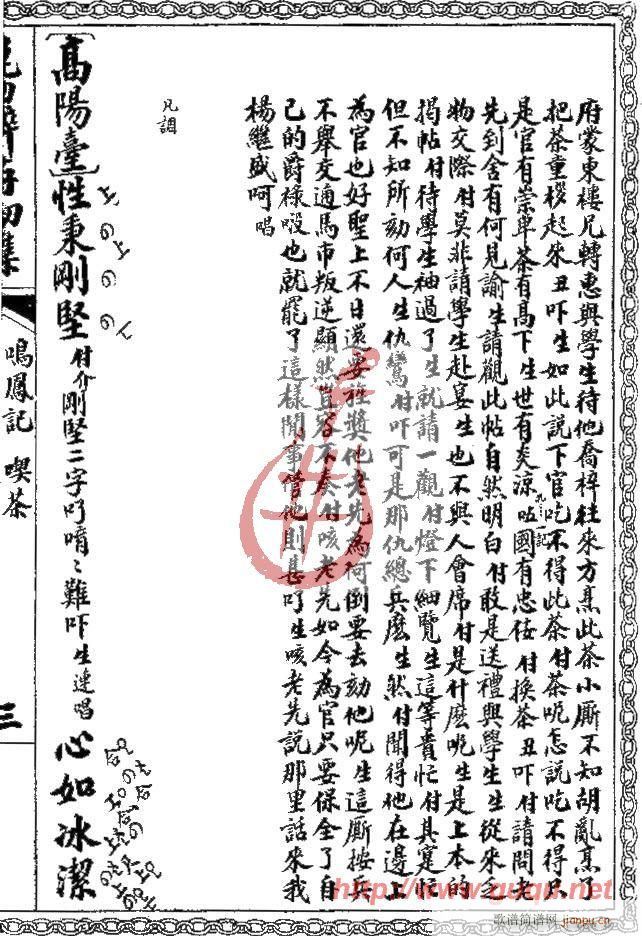 府蒙東樓兄轉惠與學生待他喬梓往來方烹此茶小厮不知胡亂烹了
把茶重撥起來丑吓生如此説下官吃不得此茶付茶呢怎説吃不得只
是官有崇卑茶有高下生世有炎涼 國有忠佞付換茶丑吓付請問老
先到舍有何見諭生請觀此帖自然明白付敢是送禮與學生生從來乏
物交際付莫非請學生赴宴生也不與人會席付是什麽呢生是上本的
揭帖付待學生袖過了生就請一觀付燈下細覽生這等貴忙付其寔忙
但不知所劾何人生仇鸞付吓可是那仇總兵麽生然付聞得他在邊上
為官也好聖上不日還要旌獎他老先為何倒要去劾他呢生這厮按兵
不舉交通馬市叛逆顯然豈容不奏付咳老先如今為官只要保全了自
己的爵祿 也就罷了這樣閒事管他則甚 生咳老先說那里話來我
楊繼盛呵唱
凡調
[高陽臺]性秉剛堅付介剛堅二字 唷唷難吓生連唱心如冰潔
鳴鳳記 喫茶
三
http://www.guqu.net
歌谱简谱网
jianpu.cn